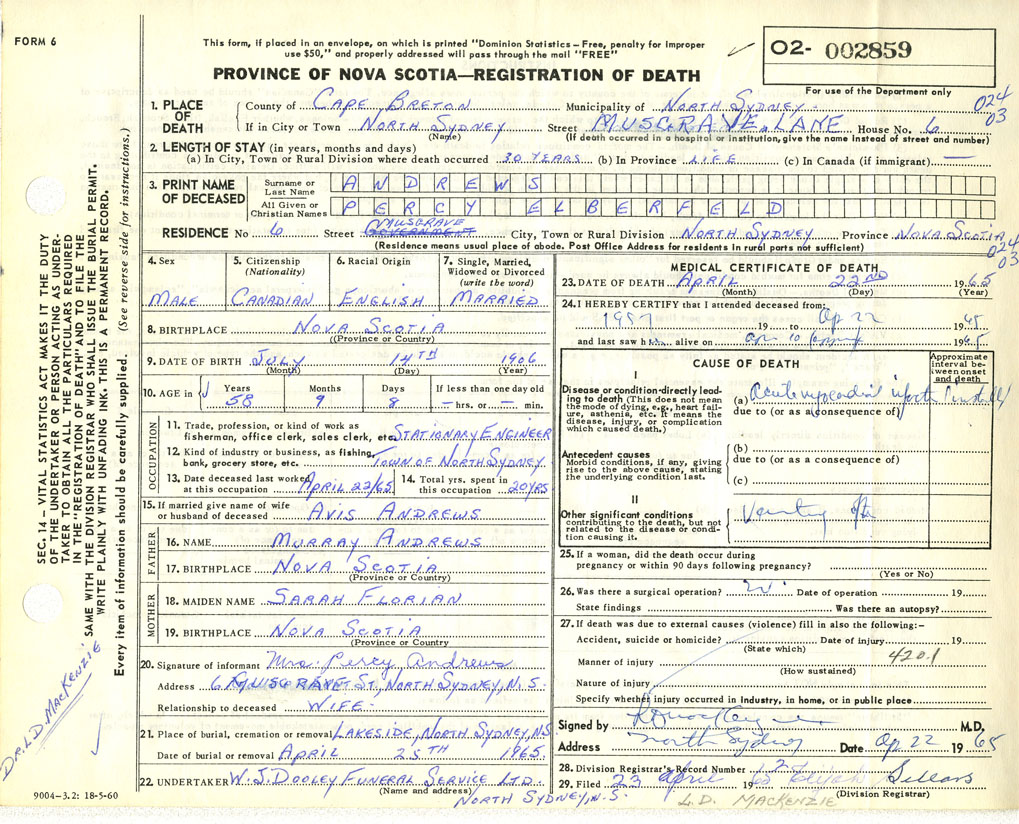 FORM 6
This form, if placed in an envelope, on which is printed "Dominion Statistics – Free, penalty for improper
use $50," and properly addressed will pass through the mail "FREE"
O2- 002859
PROVINCE OF NOVA SCOTIA—REGISTRATION OF DEATH
For use of the Department only
024
03
1. PLACE OF DEATH
County of CAPE BRETON Municipality of NORTH SYDNEY
If in City or Town NORTH SYDNEY Street MUSGRAVE LANE House No. 6
(Name) (If death occurred in a hospital or institution, give the name instead of street and number)
2. LENGTH OF STAY (in years, months and days)
(a) In City, Town or Rural Division where death occurred 30 YEARS (b) In Province LIFE (c) In Canada (if immigrant) —
3. PRINT NAME OF DECEASED
Surname or Last Name ANDREWS
All Given or Christian Names PERCY ELBERFELD
MUSGRAVE
RESIDENCE No 6 Street GOVERNMENT City, Town or Rural Division NORTH SYDNEY Province NOVA SCOTIA
(Residence means usual place of abode. Post Office Address for residents in rural parts not sufficient)
024
03
4. Sex MALE
5. Citizenship (Nationality) CANADIAN
6. Racial Origin ENGLISH
7. Single, Married, Widowed or Divorced (write the word) MARRIED
8. BIRTHPLACE NOVA SCOTIA
(Province or Country)
9. DATE OF BIRTH JULY 14TH 1906
(Month) (Day) (Year)
10. AGE in Years Months Days If less than one day old
58 9 8 — hrs. or — min.
OCCUPATION
11. Trade, profession, or kind of work as
fisherman, office clerk, sales clerk, etc. STATIONARY ENGINEER
12. Kind of industry or business, as fishing,
bank, grocery store, etc. TOWN OF NORTH SYDNEY
13. Date deceased last worked at this occupation APRIL 22/65
14. Total yrs. spent in this occupation 20 YRS
15. If married give name of wife
or husband of deceased AVIS ANDREWS
FATHER
16. NAME MURRAY ANDREWS
17. BIRTHPLACE NOVA SCOTIA
(Province or Country)
MOTHER
18. MAIDEN NAME SARAH FLORIAN
19. BIRTHPLACE NOVA SCOTIA
(Province or Country)
20. Signature of informant Mrs. Percy Andrews
Address 6 MUSGRAVE ST., NORTH SYDNEY, N.S.
Relationship to deceased WIFE
21. Place of burial, cremation or removal LAKESIDE, NORTH SYDNEY, N.S.
Date of burial or removal APRIL 25TH 1965
22. UNDERTAKER W. J. DOOLEY FUNERAL SERVICE LTD.
(Name and address)
NORTH SYDNEY, N.S.
MEDICAL CERTIFICATE OF DEATH
23. DATE OF DEATH APRIL 22ND 1965
(Month) (Day) (Year)
24. I HEREBY CERTIFY that I attended deceased from:
1957 19 to Ap 22 1965
and last saw h alive on 1965
CAUSE OF DEATH
Approximate interval between onset and death
I
Disease or condition directly leading to death (This does not mean the mode of dying, e.g., heart failure, asthenia, etc. It means the disease, injury, or complication which caused death.)
(a) Acute myocardial infarct
due to (or as a consequence of)
Antecedent causes
Morbid conditions, if any, giving rise to the above cause, stating the underlying condition last.
(b)
due to (or as a consequence of)
(c)
II
Other significant conditions
contributing to the death, but not related to the disease or condition causing it.
25. If a woman, did the death occur during
pregnancy or within 90 days following pregnancy?
(Yes or No)
26. Was there a surgical operation? Date of operation 19
State findings Was there an autopsy?
27. If death was due to external causes (violence) fill in also the following:–
Accident, suicide or homicide? Date of injury 19
(State which)
4201
Manner of injury
(How sustained)
Nature of injury
Specify whether injury occurred in industry, in home, or in public place
Signed by M.D.
Address North Sydney Date Ap 22 1965
28. Division Registrar's Record Number
29. Filed 23 April 1965 Elijah Sellars
(Division Registrar)
L.D. MACKENZIE
SEC. 14 – VITAL STATISTICS ACT MAKES IT THE DUTY
OF THE UNDERTAKER OR PERSON ACTING AS UNDER-
TAKER TO OBTAIN ALL THE PARTICULARS REQUIRED
IN THE "REGISTRATION OF DEATH" AND TO FILE THE
SAME WITH THE DIVISION REGISTRAR WHO SHALL ISSUE THE BURIAL PERMIT.
WRITE PLAINLY WITH UNFADING INK. THIS IS A PERMANENT RECORD.
Every item of information should be carefully supplied. (See reverse side for instructions.)
DR. L.D. MACKENZIE
9004-3.2: 18-5-60